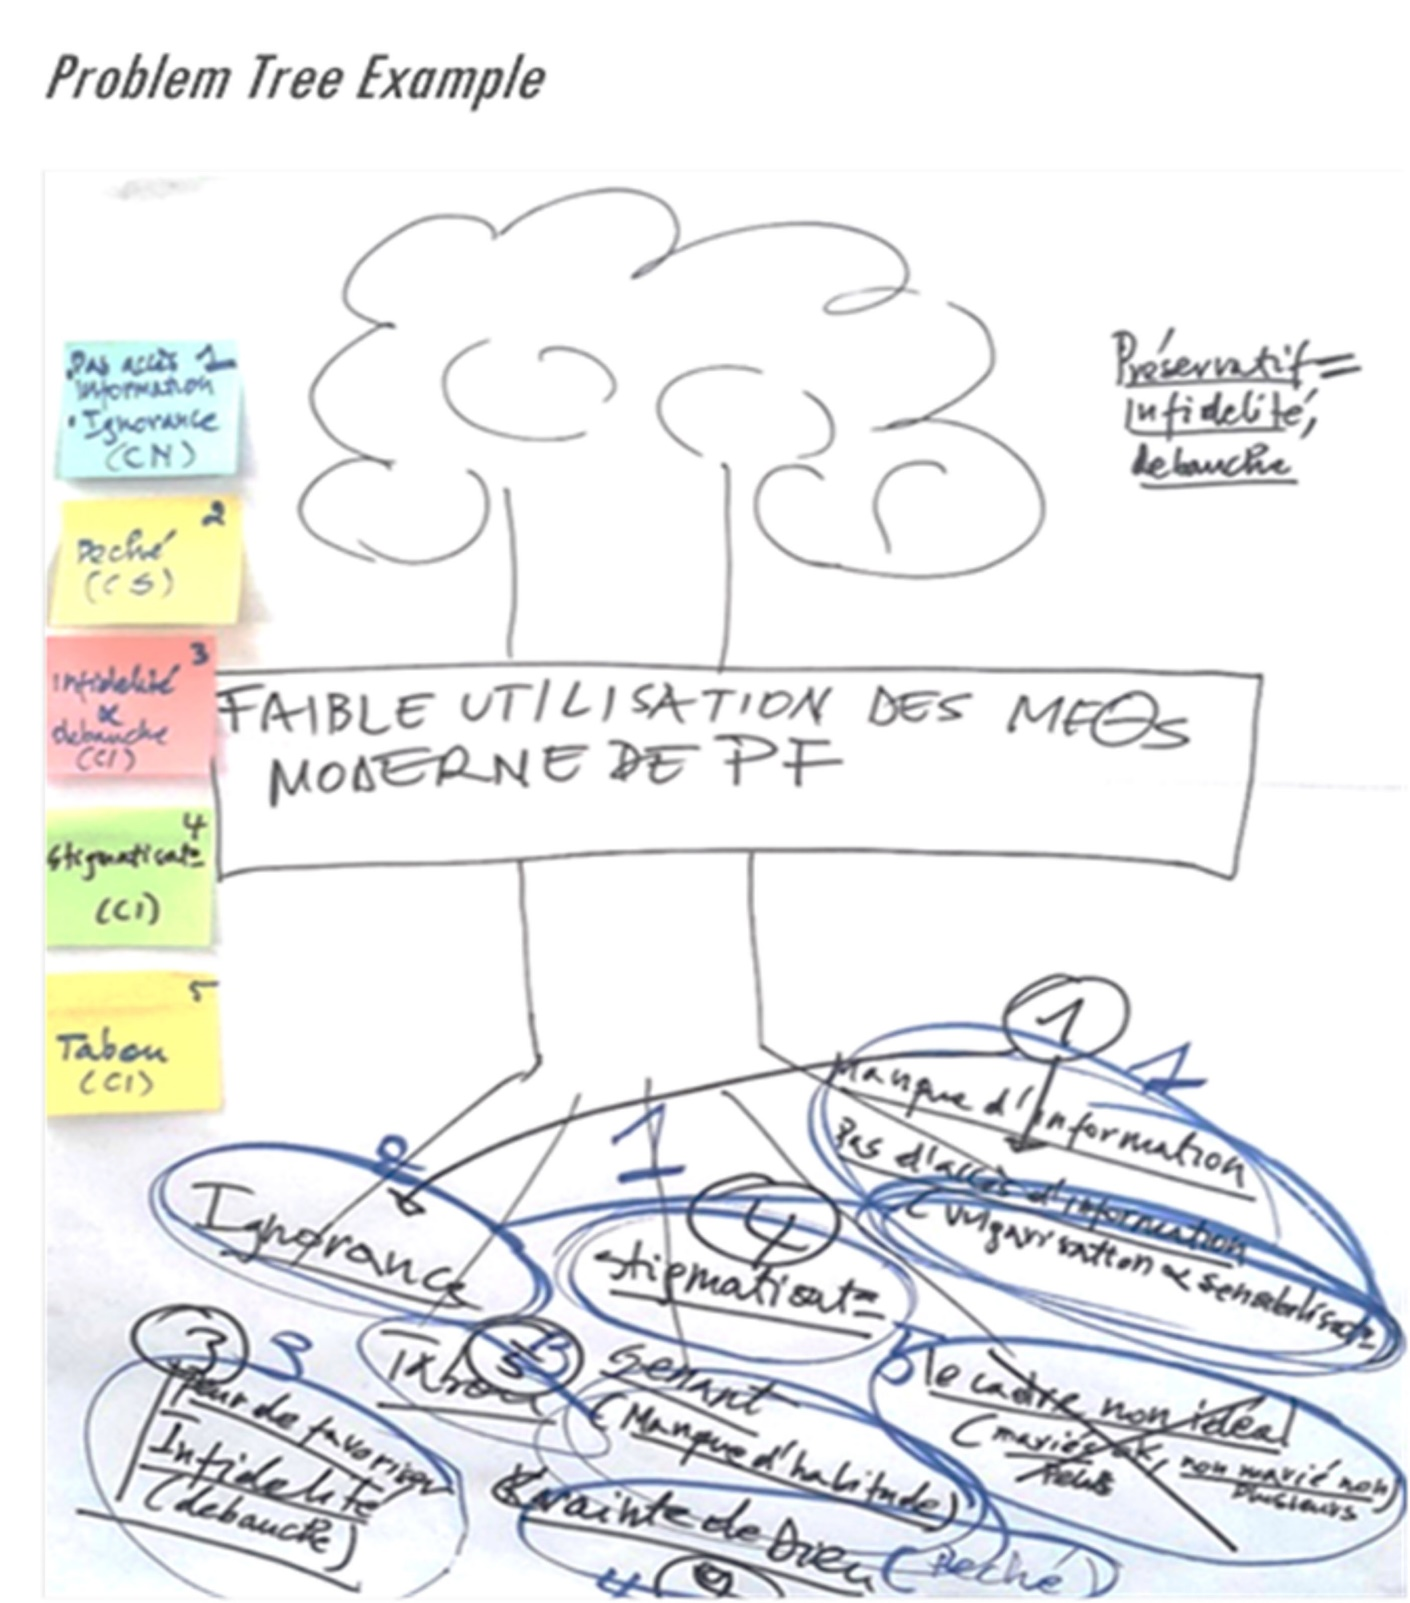 Problem Tree Example
.Pas accès 1
Information
• Ignorance
(CN)
2
Peché
(CS)
3
Infidelité
&
debauche
(CI)
4
Stigmatisat°
(CI)
5
Tabou
(CI)
Préservatif =
Infidelité,
debauche
FAIBLE UTILISATION DES MEΘs
MODERNE DE PF
1
1
Manque d'information
Pas d'accès d'information
(Vulgarisation & sensibilisat°
2
Ignorance
1
4
stigmatisat°
3
3
Peur de favoriser
Infidelité
(debauche)
Tabou
5
(Manque d'habitude)
Crainte de Dieu (Peché)
4
2
5
le cadre non idéal
(mariés ok, non marié non)
plusieurs